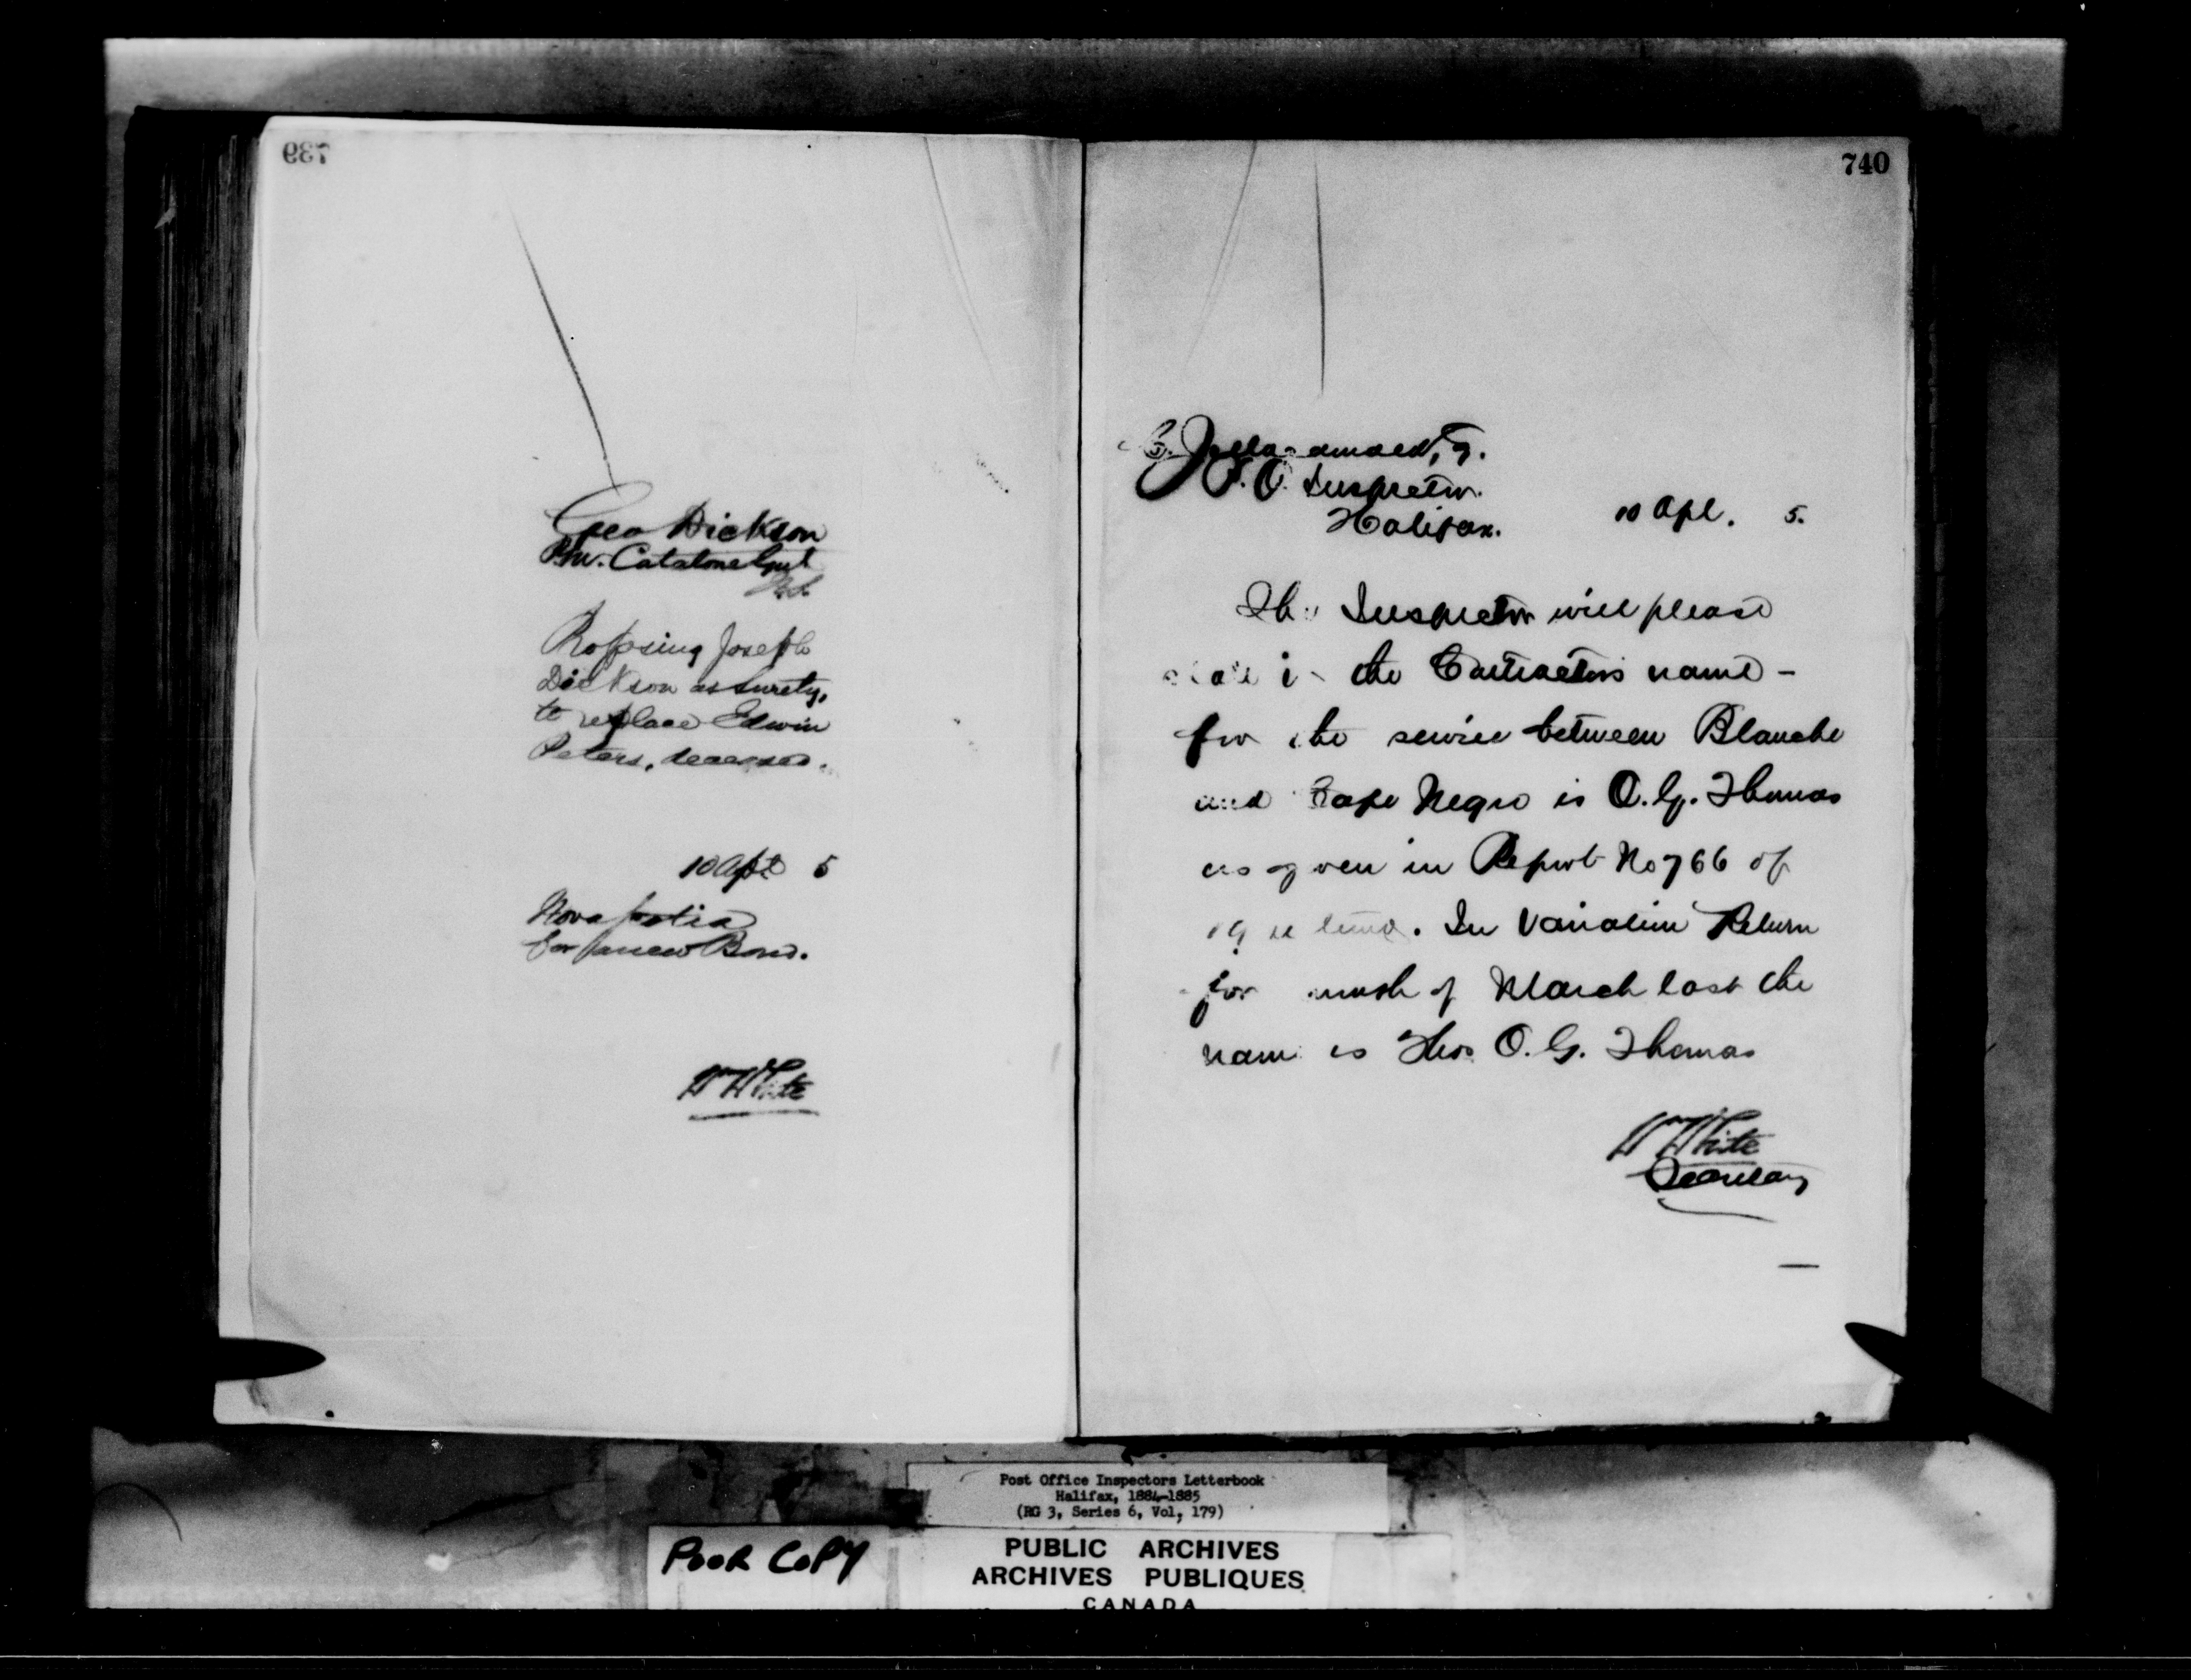 739
Geo Dickson
P.M. Catalone Gut
N.S.
Proposing Joseph
Dickson as surety,
to replace Edwin
Peters, deceased.
10 Apl 5
Nova Scotia
for a new Bond.
Wm White
740
P.O. Inspector.
Halifax.
10 Apl. 5.
The Inspector will please
state if the Contractor's name -
for the service between Blanche
and Cape Negro is O. G. Thomas
as given in Report No 766 of
19. In Variation Return
for month of March last the
name is Thos O. G. Thomas
Wm White
Secretary
Post Office Inspectors Letterbook
Halifax, 1884-1885
(RG 3, Series 6, Vol, 179)
POOR COPY
PUBLIC ARCHIVES
ARCHIVES PUBLIQUES
CANADA